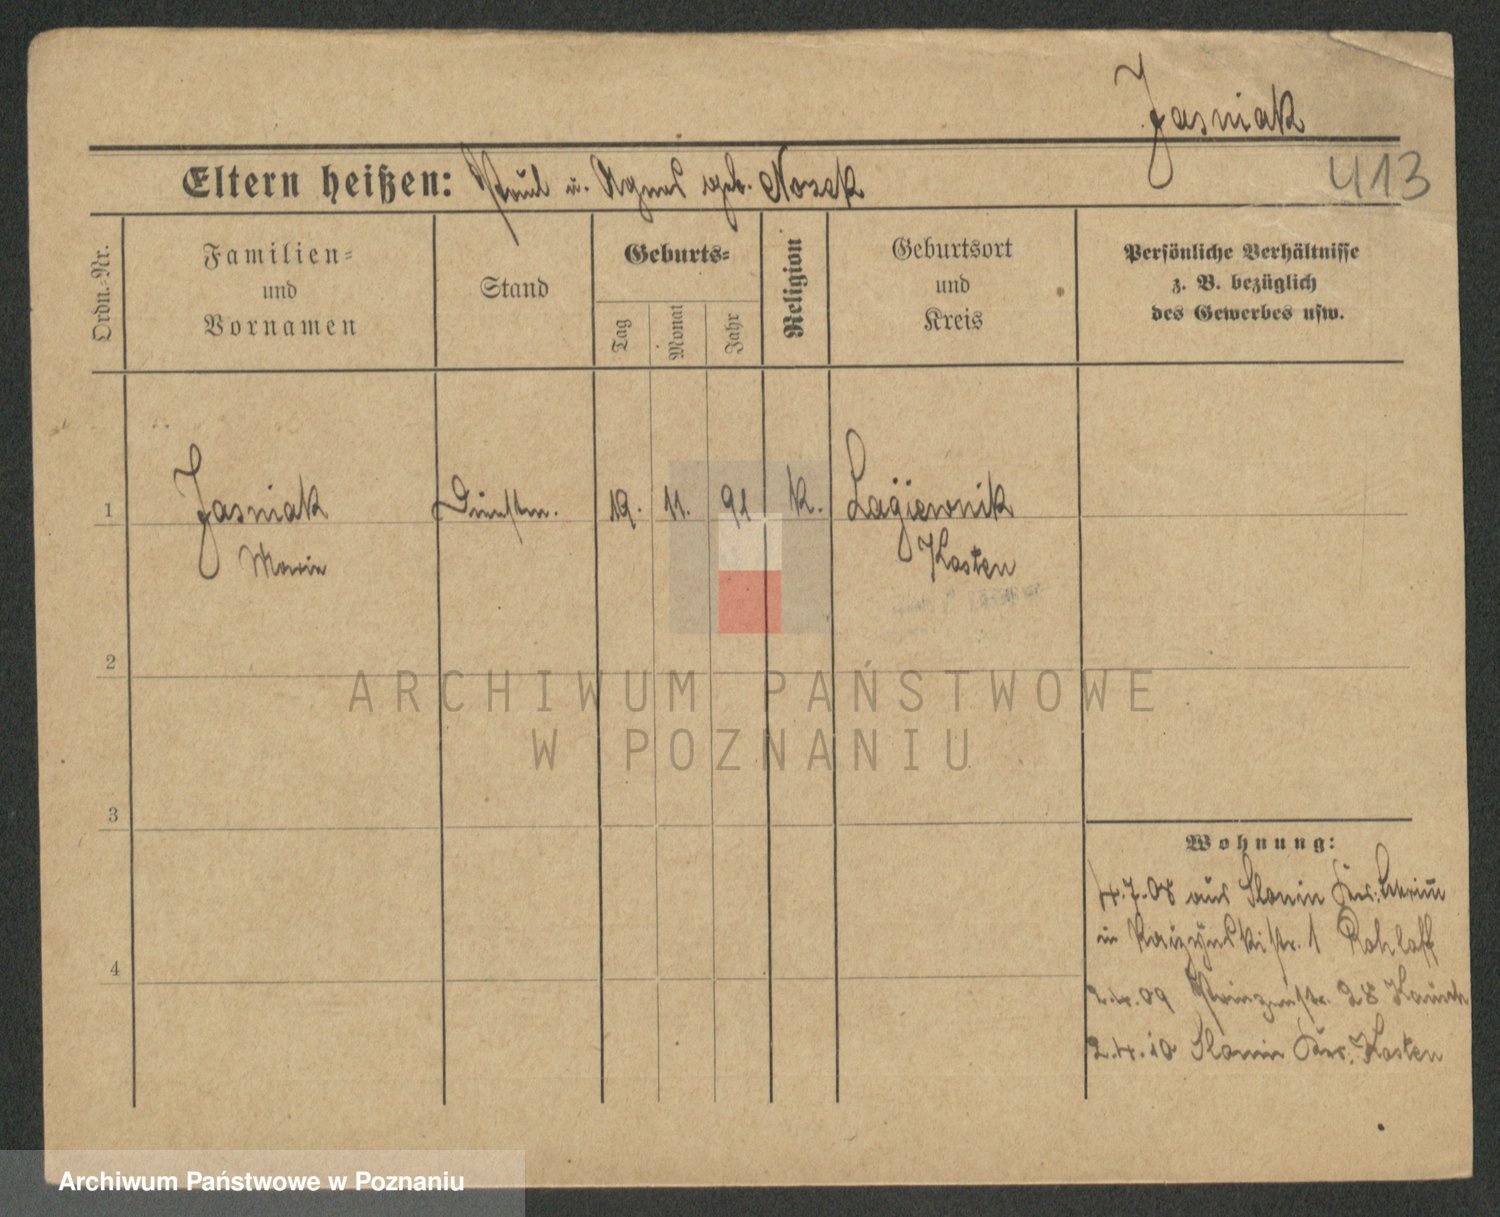 Jasniak
413
Eltern heißen: Paul u. Agnes geb. Nozak
Ordn.-Nr.
Familien-
und
Vornamen
Stand
Geburts-
Tag
Monat
Jahr
Religion
Geburtsort
und
Kreis
Persönliche Verhältnisse
z. B. bezüglich
des Gewerbes usw.
1
Jasniak
Marie
19. 11. 91
k.
Łagiewnik
Kosten
2
ARCHIWUM PAŃSTWOWE
W POZNANIU
3
Wohnung:
4.7.08 aus Slonin
in Raczynskistr. 1 Rohloff
4
2.4.09 Prinzenstr. 28
2.4.10 Slonin Krs. Kosten
Archiwum Państwowe w Poznaniu